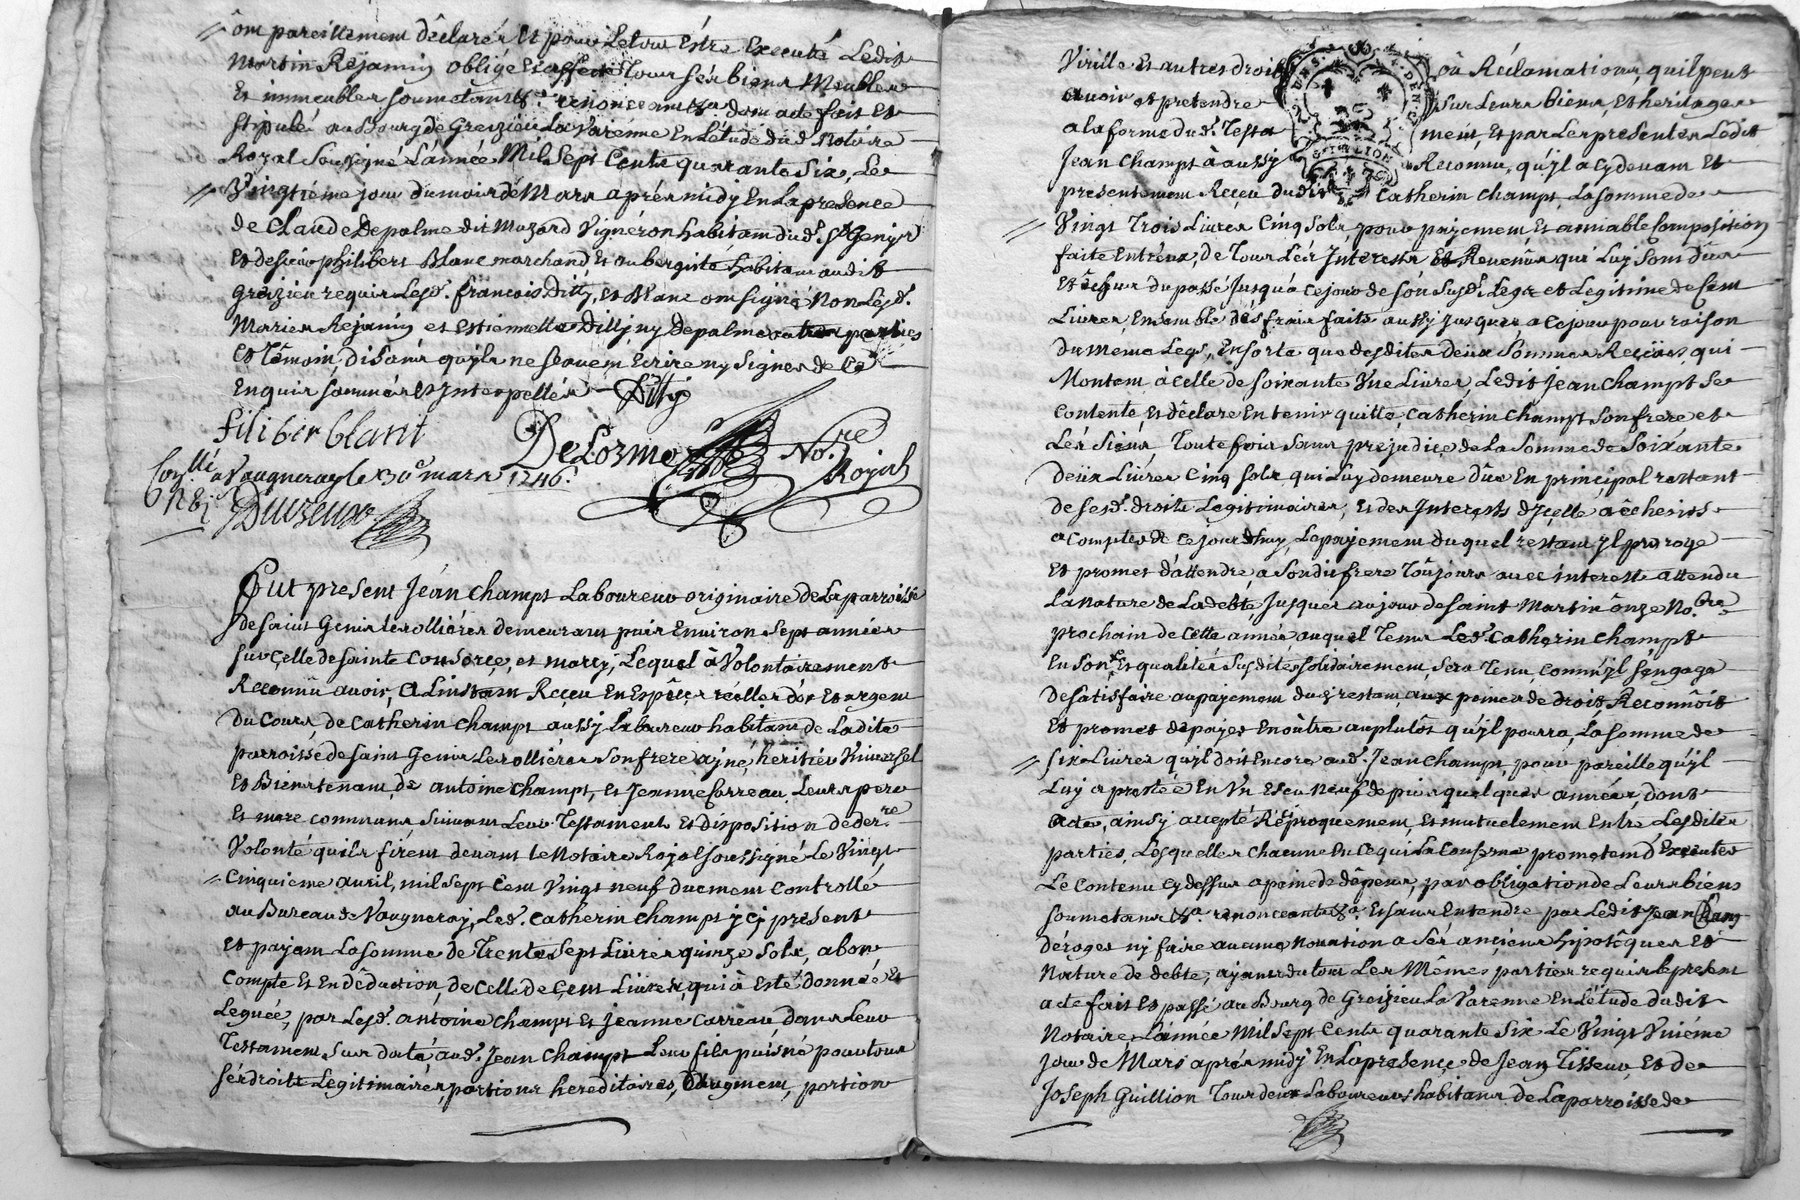 ont pareillement déclaré, et pour le tout Estre Executé Ledit
Martin Réjanin obligé Et affecté Tous sés biens Meubles
Et immeubles soumetant &a. renonceant &a. dont acte fait Et
stipulé au Bourg de Greizieu La Varenne En L'étude dud. Notaire
Royal Soussigné L'année Mil Sept Cents quarante Six, Le
Vingtiéme jour du mois dé Mars aprés midy En La presence
de Claude Depalme dit Mazard Vigneron habitant dud. St. Genis
Et de sieur philibert Blanc marchand Et aubergiste habitant audit
Greizieu requis Lesd. françois Ditty, et Blanc ont signé Non Lesd.
Maries Réjanin et Estiennette Dilly ny Depalme
Et Témoin, disant qu'ils ne scavent Ecrire ny signer de Ce
Enquis sommés Et Interpellés Ditty
filiber blant
DeLorme No.re Royal
Con.llé a Vaugneray le 30e mars 1746.
Fut present Jéan Champt Laboureur originaire de La parroisse
de saint Genis Les ollières demeurant puis Environ Sept années
sur çelle de sainte Consorçe, et marcy, Lequel à Volontairement
Reconnu avoir, à L'instant Reçeu En Espéçes réelles d'or Et argent
du Cours, de Catherin Champt aussy Laboureur habitant de Ladite
parroisse de saint Genis Les ollières son frere ajné, heritier Universel
Et Bienstenant, de antoine Champt, Et Jeanne Carreau Leurs pere
Et mere communs suivant Leur Testament Et disposition de der.re
Volonté qu'ils firent devant le Notaire Royal soussigné Le Vingt
Cinquieme avril, mil sept Cent Vingt neuf duement Controllé
au Bureau de Vaugneray, Led. Catherin Champt ycy présent
Et payant La somme de Trente sept Livres quinze sols, a bon
Compte Et En déduction, de Celle de Çent Livres, qui à Esté donnée Et
Leguée, par Lesd. antoine Champt Et Jeanne Carreau, dans Leur
Testament Sus daté aud. Jean Champt Leur fils puisné pour tous
sés droits Legitimaires, portions hereditaires, D'augment, portion
Virille Et autres droits où Réclamations, qu'il peut
avoir et pretendre sur Leurs biens, Et heritages
a la forme dud. Testament, Et par Les presentes Ledit
Jean Champt à aussy Reconnu, qu'yl a cy devant Et
presentement Reçeu dudit Catherin Champt, La somme de
Vingt Trois Livres Cinq sols pour payement Et amiable Composition
faite Entr'eux, de Tous Lés Interests Et Revenus qui Luy sont dûs
Et échus du passé jusqu'à ce jour de son susd. Legs et Legitime de Cent
Livres, Ensemble dés frais faits aussy jusques a ce jour pour raison
du meme Legs, En sorte que desdites deux Sommes Reçues qui
Montent à Celle de soixante Une Livres, Ledit Jean Champt se
contente, Et déclare En tenir quitte, Catherin Champt son frere et
Lés siens, Toute fois sans prejudice de La Somme de soixante
deux Livres Cinq sols qui Luy demeure dûe En principal restant
de sesd. droits Legitimaires, Et des Interests d'Jçelle à écheoir
a Compter de Ce jourdhuy, Le payement du quel restant yl proroge
Et promet d'attendre, a Son dit frere Toujours avec interests attendu
La nature de La debte, jusques au jour de saint Martin ônze No.bre
prochain de Cette année, auquel Tems Led. Catherin Champt
En son Et qualités Susdites solidairement, sera Tenu, Comm'yl s'engage
de satisfaire au payement dud. restant, aux peines de droit, Reconnôit
Et promet de payer En oûtre au plutôt qu'yl pourra, La somme de
six Livres qu'yl doit Encore aud. Jean Champt, pour pareille qu'yl
Luy a prestée En Un Ecu Neuf depuis quelques années, dont
acte, ainsy accepté Réciproquement, Et mutuelement Entre Lesdites
parties, Lesquelles Chacune En Ce qui La Conserne promettent d'Executer
Le Contenu cy dessus a peine de dépens, par obligation de Leurs biens
soumetans &a. renonceants &a. Et sans Entendre par Ledit Jean Champ
déroger ny faire aucune Novation a Sés anciens hipotéques Et
Nature de debte, ayants du tout Les Mêmes parties requis Le present
acte fait Et passé au Bourg de Greizieu La Varenne En L'étude dudit
Notaire L'année Mil Sept Cents quarante Six Le Vingt Uniéme
jour de Mars aprés midy En La presençe de Jean Tisseur, Et de
Joseph Guillion Tous deux Laboureurs habitans de La parroisse de